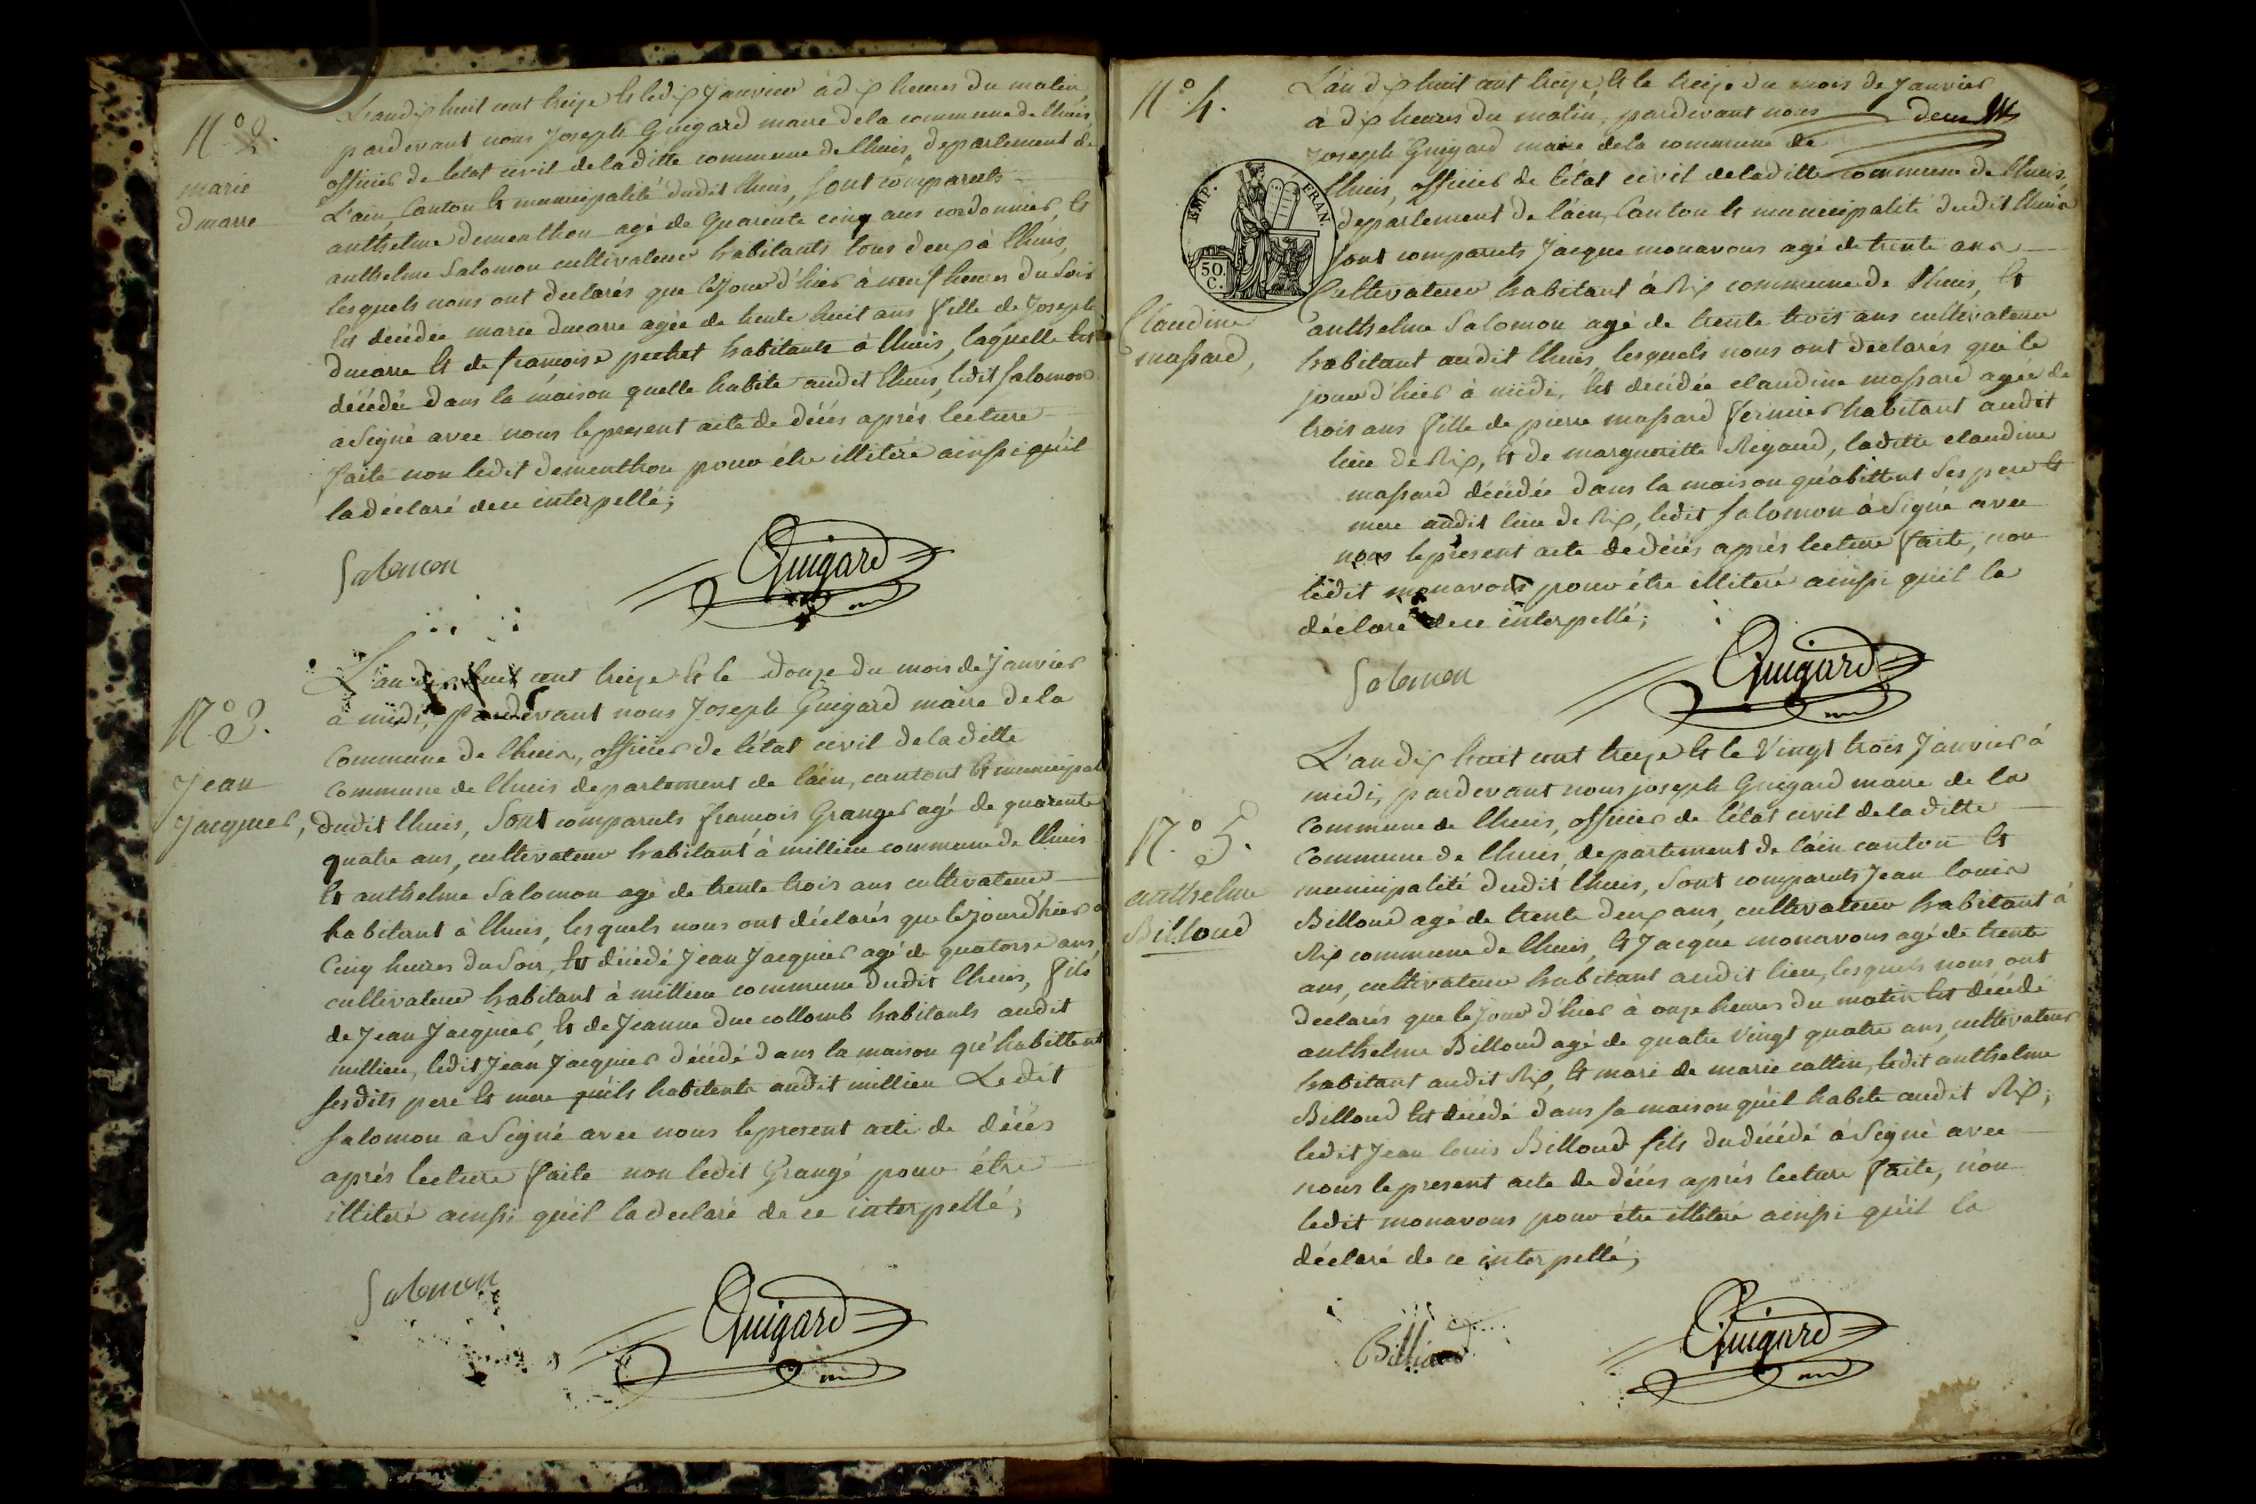 N.° 2.
marie
ducarre
L'an dix huit cent treize et le dix Janvier à dix heures du matin,
pardevant nous Joseph Guigard maire de la commune de lhuis,
officier de letat civil de laditte commune de lhuis, departement de
L'ain, Canton et municipalité dudit lhuis, sont comparuts
anthelme dementhon agé de quarente cinq ans cordonnier, et
anthelme Salomon cultivateur habitants tous deux à lhuis,
lesquels nous ont declarés que lejour d'hier à neuf heures du Soir
est décédée marie ducarre agée de trente huit ans fille de Joseph
ducarre et de françoise pechet habitante à lhuis, laquelle est
décédée dans la maison quelle habite audit lhuis, ledit salomon
a Signé avec nous le present acte de décés aprés lecture
faite non ledit dementhon pour étre illiteré ainssi quil
la déclaré dece interpellé;
Salomon
Guigard
N.° 3.
Jean
Jacquier,
L'an dix huit cent treize et le douze du mois de Janvier
à midi, pardevant nous Joseph Guigard maire de la
Commune de lhuis, officier de l'état civil de laditte
Commune de lhuis departement de l'ain, cantont et municipal
dudit lhuis, Sont comparuts françois Granger agé de quarente
quatre ans, cultivateur habitant à millieu commune de lhuis
et anthelme Salomon agé de trente trois ans cultivateur
habitant à lhuis, lesquels nous ont déclarés que lejourd'hier à
Cinq heures du Soir, est décédé Jean Jacquier agé de quatorse ans,
cultivateur habitant à millieu commune dudit lhuis, fils
de Jean Jacquier, et de Jeanne ducollomb habitants audit
millieu, ledit Jean Jacquier décédé dans la maison qu'habittent
sesdits pere et mere quils habitents audit millieu Ledit
Salomon à Signé avec nous le present acte de décés
aprés lecture faite non ledit Grangé pour étre
illiteré ainssi quil la declaré de ce interpellé;
Salomon
Guigard
N.° 4.
Claudine
massard,
L'an dix huit cent treize, et le treize du mois de Janvier
à dix heures du matin, pardevant nous
Joseph Guigard maire dela commune de
lhuis, officier de l'état civil de laditte commune de lhuis,
departement de l'ain, Canton et municipalité dudit lhuis
sont comparuts Jacque monavous agé de trente ans
Cultivateur habitant à Rix commune de lhuis, et
anthelme Salomon agé de trente trois ans cultivateur
habitant audit lhuis, lesquels nous ont déclarés que le
jour d'hier à midi, est décédée claudine massard agée de
trois ans fille de pierre massard fermier habitant audit
lieu de Rix, et de margueritte Rigaud, laditte claudine
massard décédée dans la maison qu'abittent Ses pere et
mere audit lieu de Rix, ledit Salomon à Signé avec
nous le present acte dedécés aprés lecture faite, non
ledit monavous pour étre illiteré ainssi quil la
déclaré dece interpellé;
EMP. FRAN.
50.
C.
Salomon
Guigard
N.° 5.
anthelme
Billoud
L'an dix huit cent treize et le Vingt trois Janvier à
midi, pardevant nous joseph Guigard maire de la
Commune de lhuis, officier de l'état civil de laditte
Commune de lhuis, departement de l'ain canton et
municipalité dudit lhuis, Sont comparuts Jean louis
Billoud agé de trente deux ans, cultivateur habitant à
Rix commune de lhuis, et Jacque monavous agé de trente
ans, cultivateur habitant audit lieu, lesquels nous ont
declarés que le jour d'hier à onze heures du matin est décédé
anthelme Billoud agé de quatre Vingt quatre ans, cultivateur
habitant audit Rix, et mari de marie cattin, ledit anthelme
Billoud est décédé dans sa maison qu'il habite audit Rix;
ledit Jean louis Billoud fils du décédé à Signé avec
nous le present acte de décés aprés lecture faite, non
ledit monavous pour étre illiteré ainssi qu'il la
déclaré de ce interpellé;
Guigard